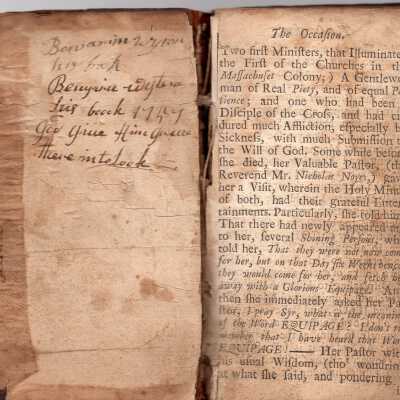 his book
his book 1757
God Give Him Grace
There in to look
The Occasion.
Two first Ministers, that Illuminate
the First of the Churches in th
Massachuset Colony;) A Gentlewo
man of Real Piety, and of equal Pa
tience; and one who had been
Disciple of the Cross, and had en
dured much Affliction, especially b
Sickness, with much Submission
the Will of God. Some while before
she died, her Valuable Pastor, (th
Reverend Mr. Nicholas Noyes,) gave
her a Visit, wherein the Holy Mind
of both, had their grateful Enter
tainments. Particularly, she told him
That there had newly appeared
to her, several Shining Persons, wh
told her, That they were not now come
for her, but on that Day six Weeks hence
they would come for her, and fetch her
away with a Glorious Equipage. An
then she immediately asked her Pa
stor, I pray Syr, what is the meaning
of the Word EQUIPAGE? I don't re
that I have heard that Word
EQUIPAGE! —— Her Pastor with
his usual Wisdom, (tho' wondring
at what she said, and pondering